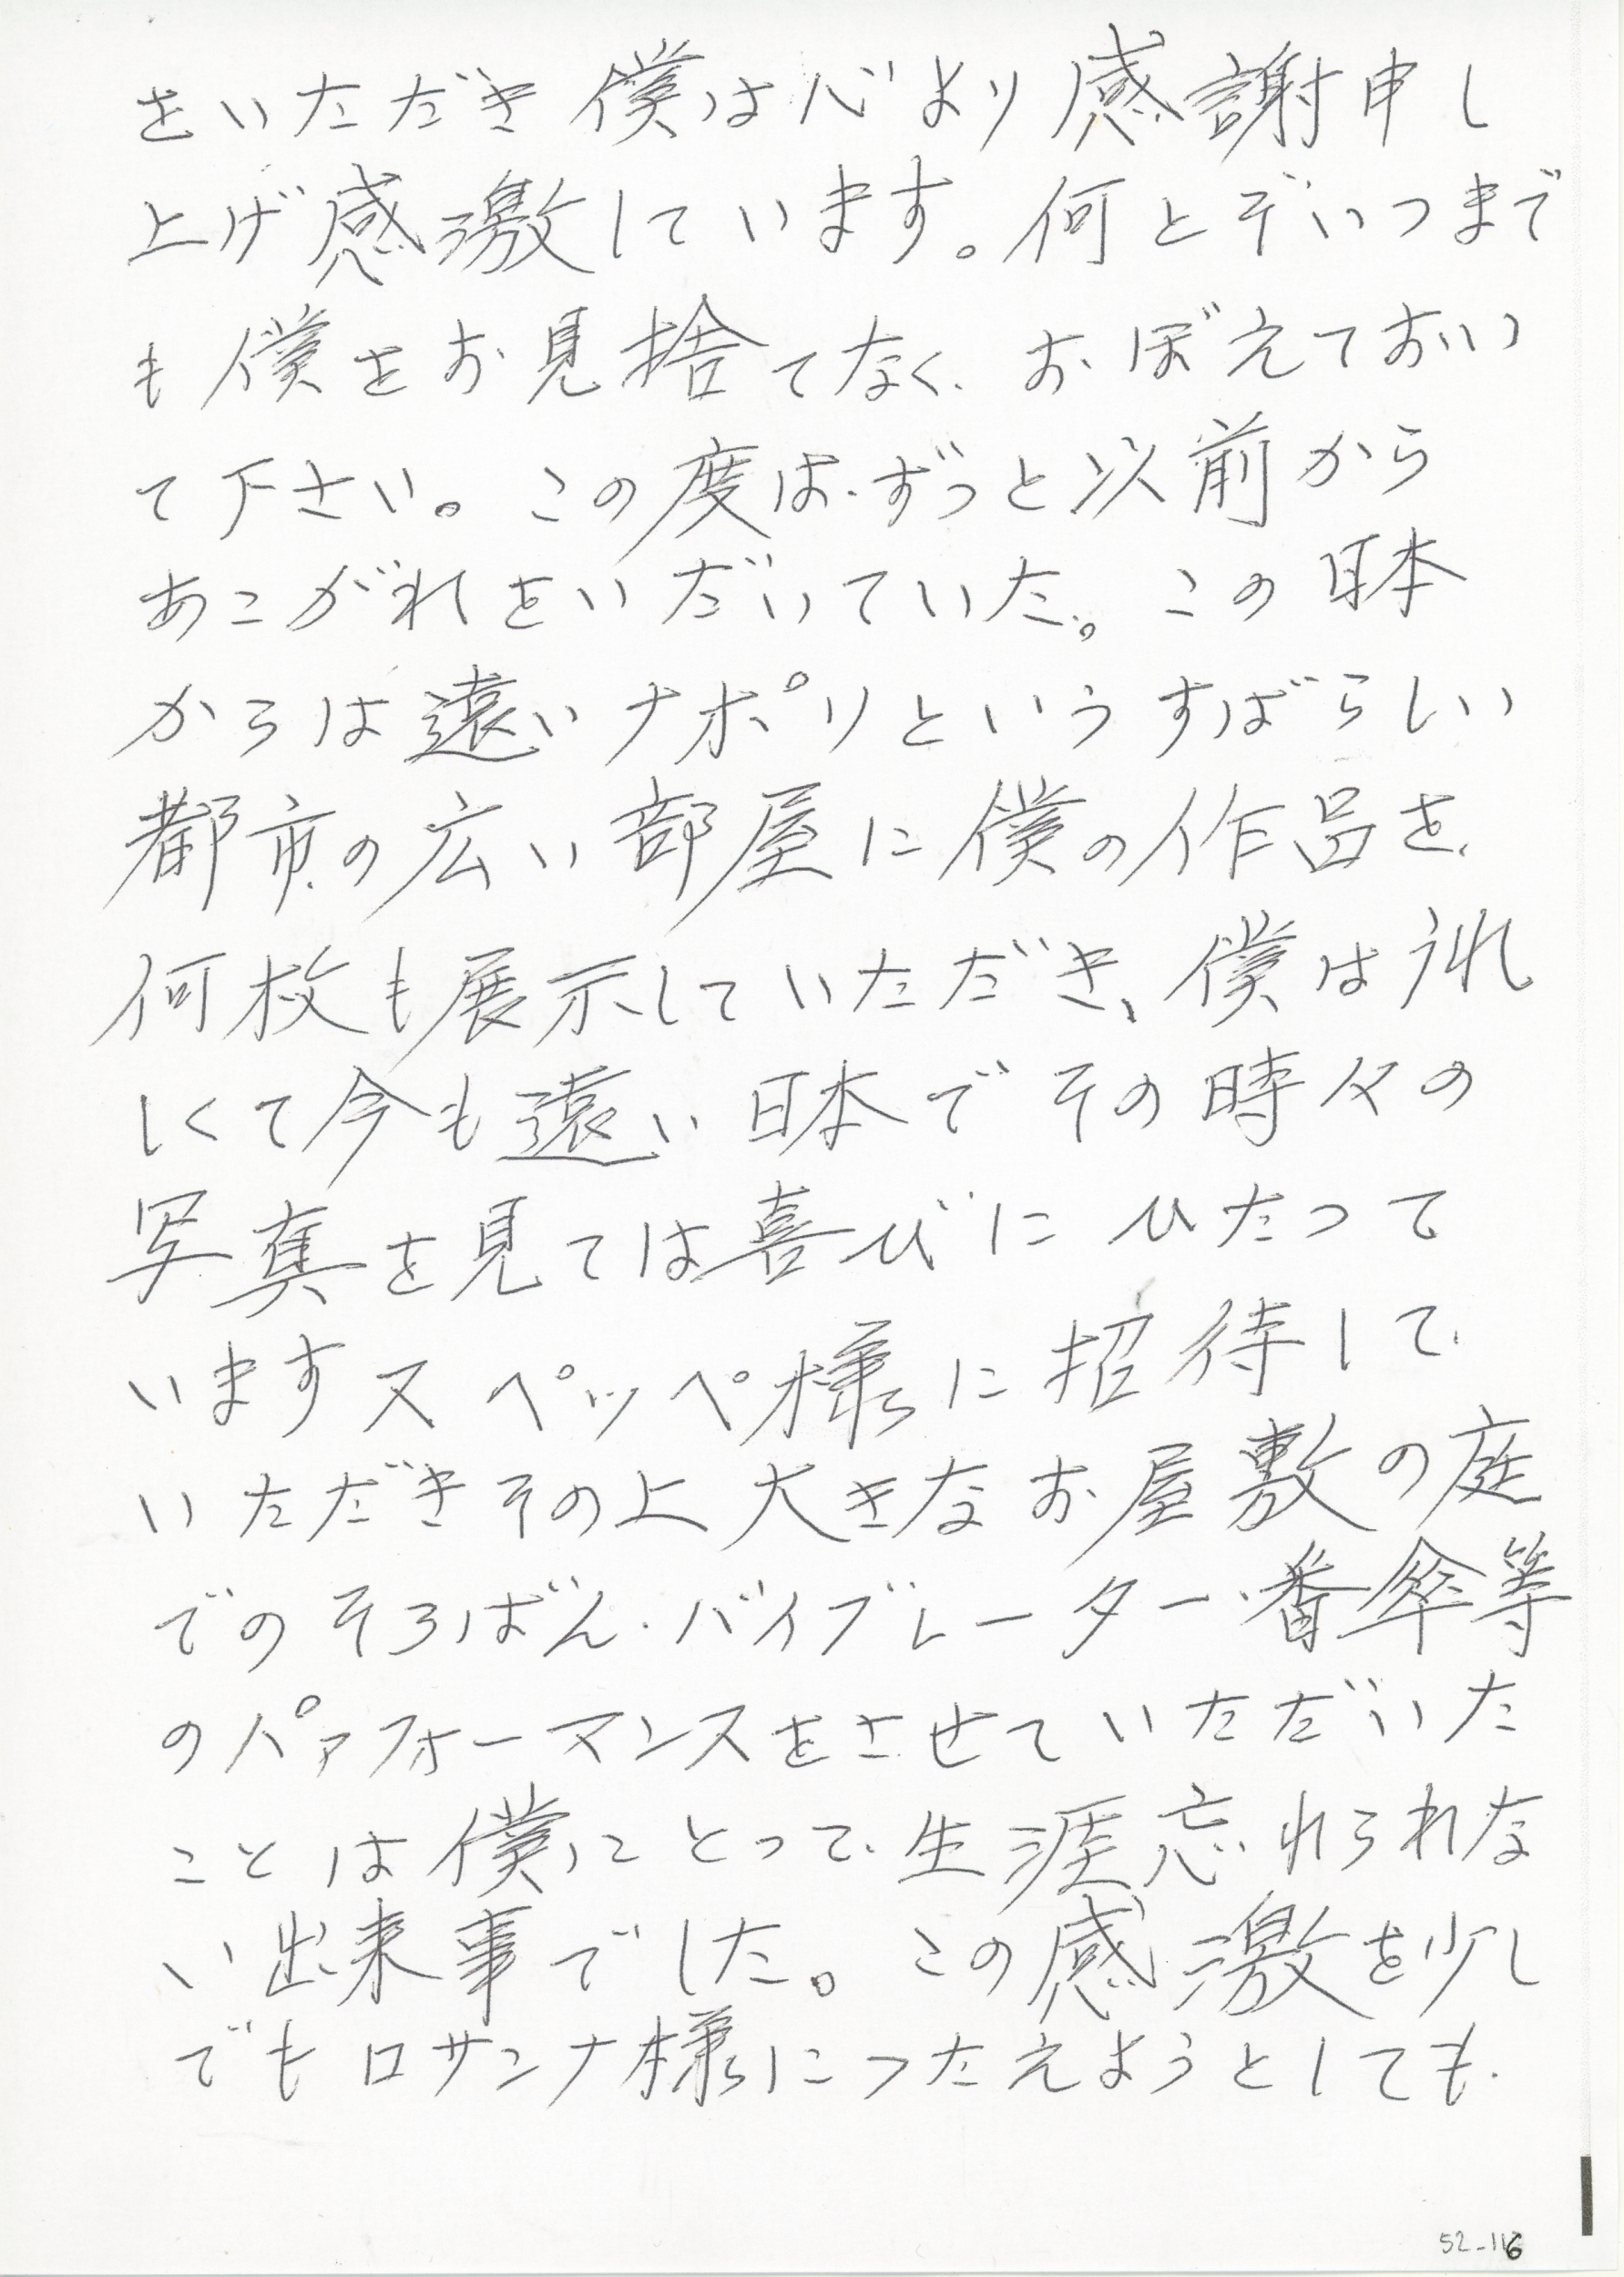 をいただき僕は心より感謝申し
上げ感激しています。何とぞいつまで
も僕をお見捨てなく、おぼえておい
て下さい。この度は、ずっと以前から
あこがれをいだいていた。この日本
からは遠いナポリというすばらしい
都市の広い部屋に僕の作品を、
何枚も展示していただき、僕はうれ
しくて今も遠い日本でその時々の
写真を見ては喜びにひたって
いますスペッペ様に招待して、
いただきその上大きなお屋敷の庭
でのそろばん・バイブレーター・番傘等
のパァフォーマンスをさせていただいた
ことは僕にとって、生涯忘れられな
い出来事でした。この感激を少し
でもロサンナ様につたえようとしても、
52-116